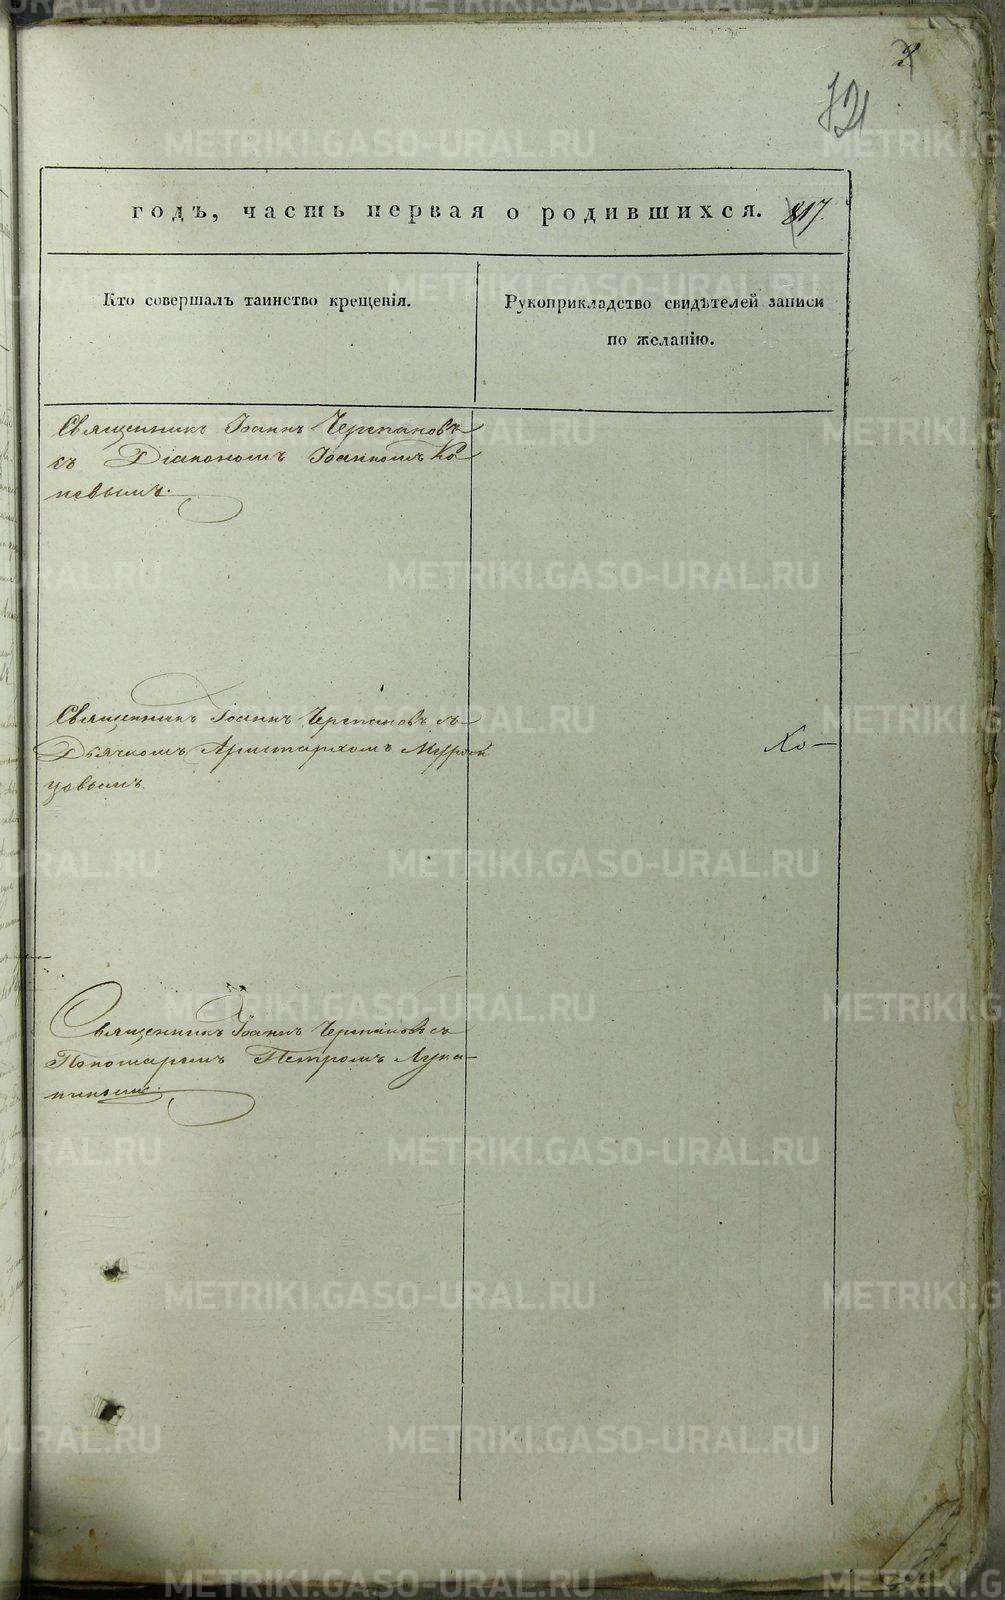 2
121
годъ, часть первая о родившихся. 817.
Кто совершалъ таинство крещенія.
Рукоприкладство свидѣтелей записи
по желанію.
Священникъ Іоаннъ Черепановъ
съ Діакономъ Іоанномъ Ко
невымъ.
Священникъ Іоаннъ Черепановъ съ
Дьячкомъ Аристархомъ
Хо-
цовымъ.
Священникъ Іоаннъ Черепановъ съ
Пономаремъ Петромъ Лука-
нинымъ.
METRIKI.GASO-URAL.RU